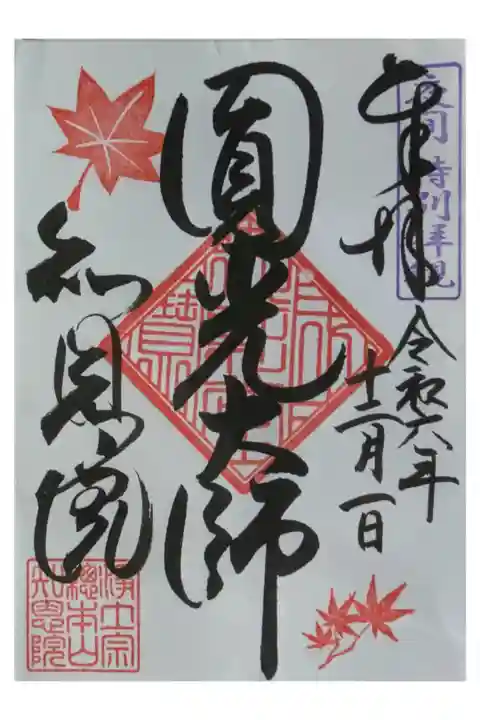 夜間特別拝観
奉拝
令和六年
十二月一日
圓光大師
知恩院
浄土宗
總本山
知恩院